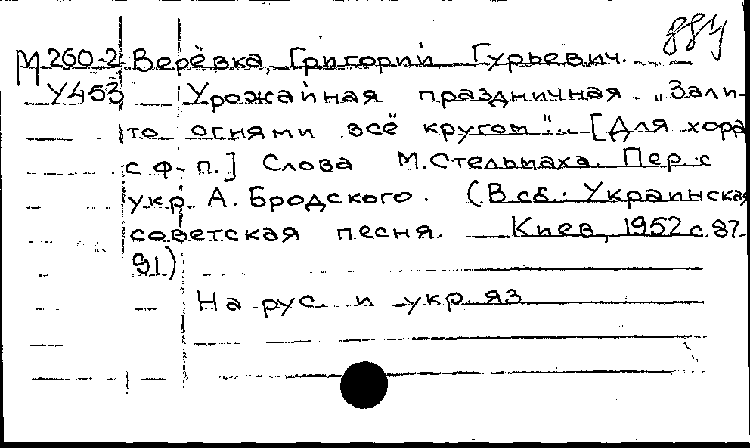 884
М260-2 Верёвка, Григорий Гурьевич.
У453 Урожайная праздничная. „Зали-
то огнями всё кругом“.. [Для хора
с ф-п.] Слова М.Стельмаха. Пер. с
укр. А. Бродского. (В сб.: Украинская
советская песня. Киев, 1952 с. 87-
91)
На рус. и укр. яз.